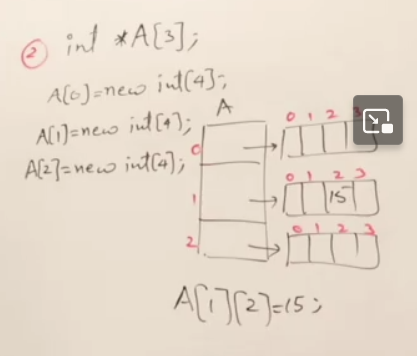 ② int *A[3];
A[0]=new int[4];
A[1]=new int[4];
A[2]=new int[4];
A
0 1 2 3
0
0 1 2 3
1
15
0 1 2 3
2
A[1][2]=15;